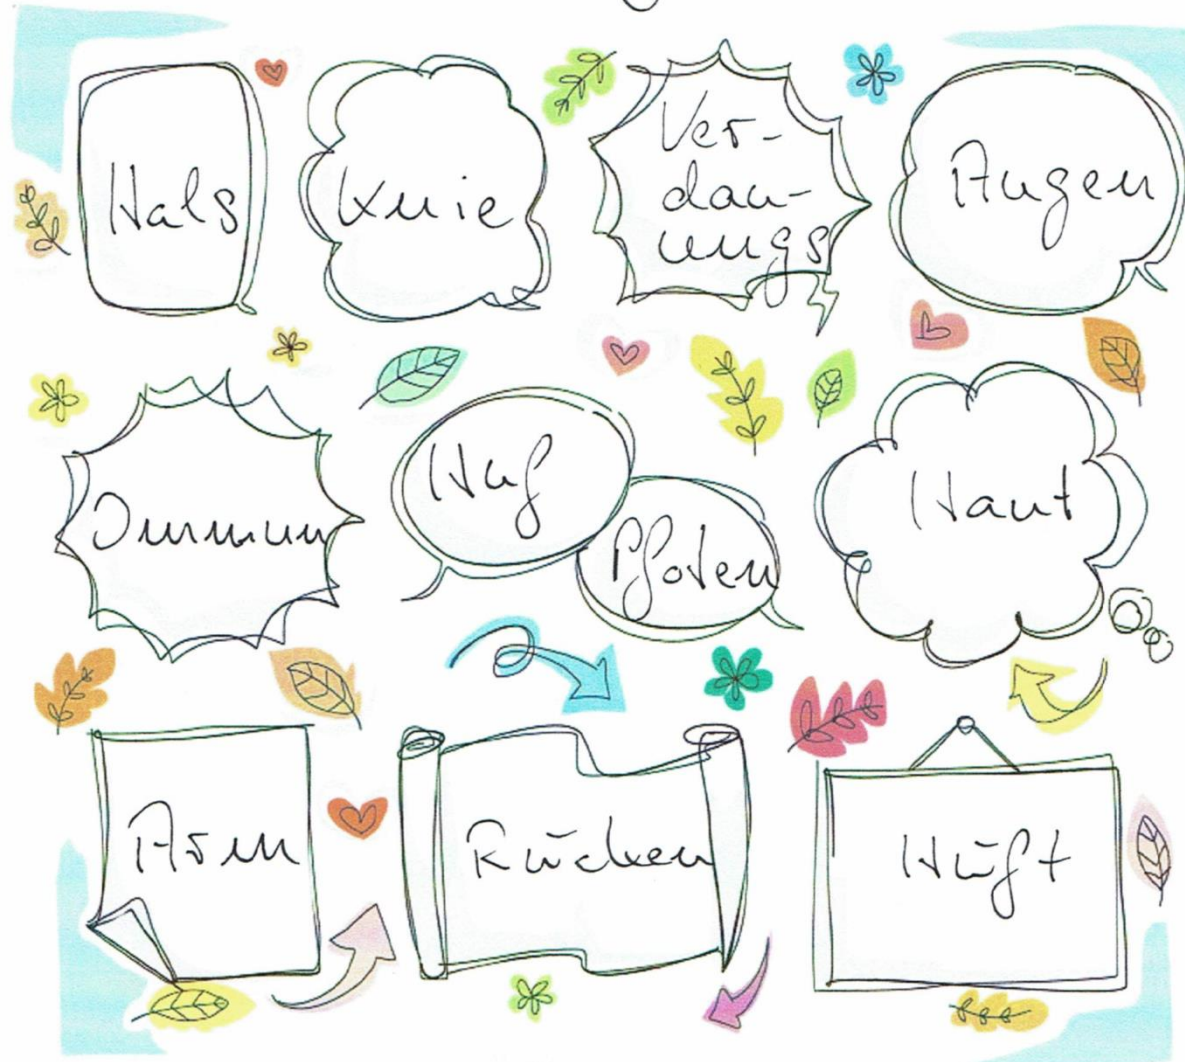 Hals
Knie
Ver-
dau-
ungs
Augen
Immun
Huf
Pfoten
Haut
Arm
Rücken
Hüft